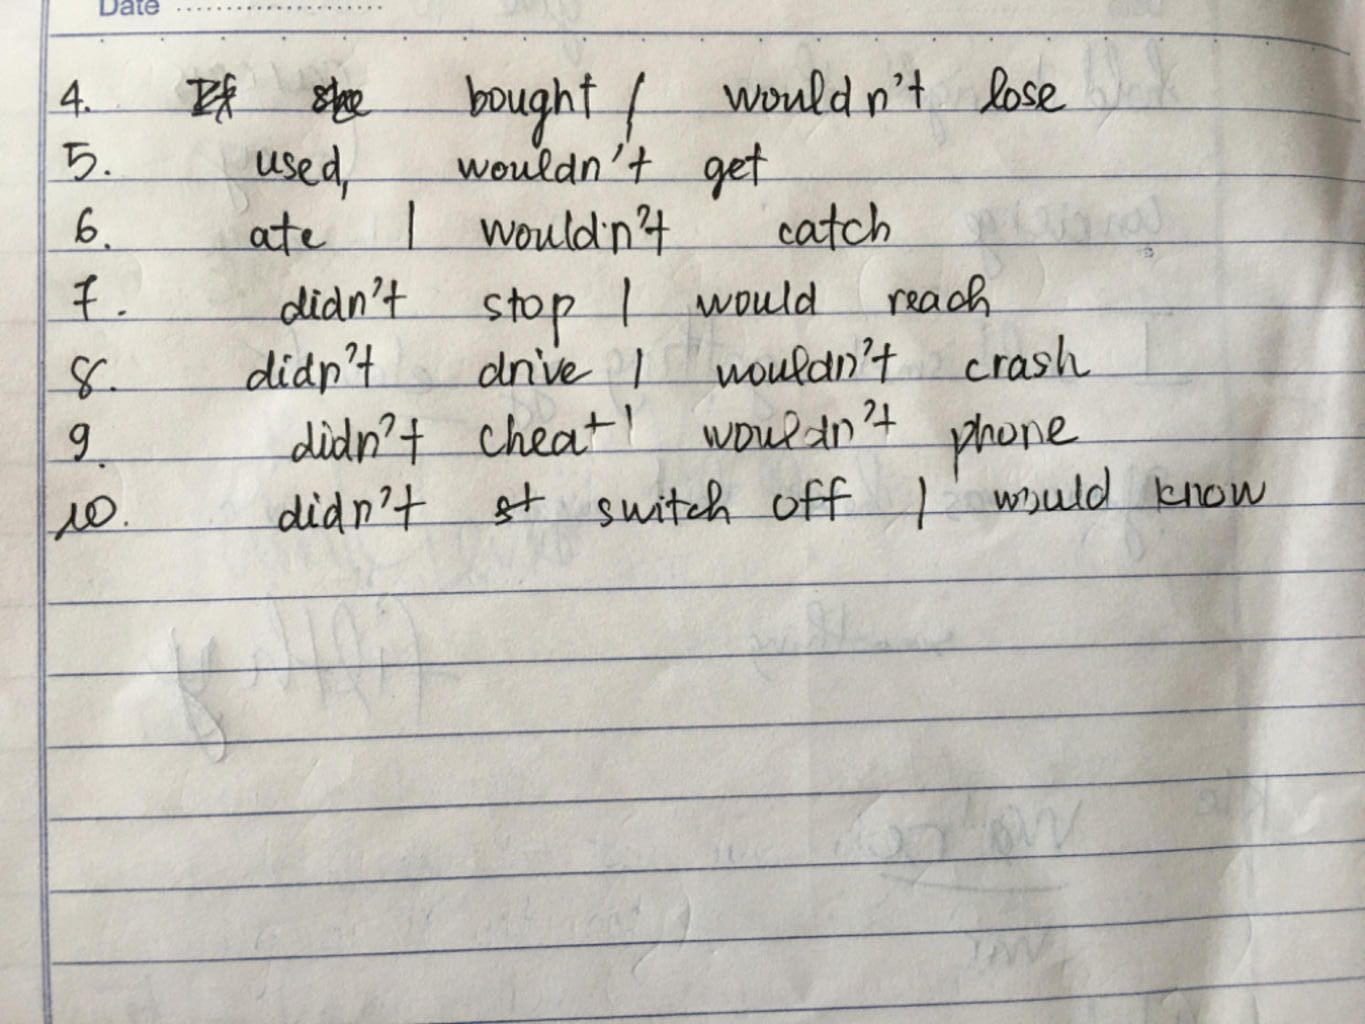 Date ........................
4. If she bought / wouldn't lose
5. used, wouldn't get
6. ate / wouldn't catch
7. didn't stop / would reach
8. didn't drive / wouldn't crash
9. didn't cheat / wouldn't phone
10. didn't st switch off / would know